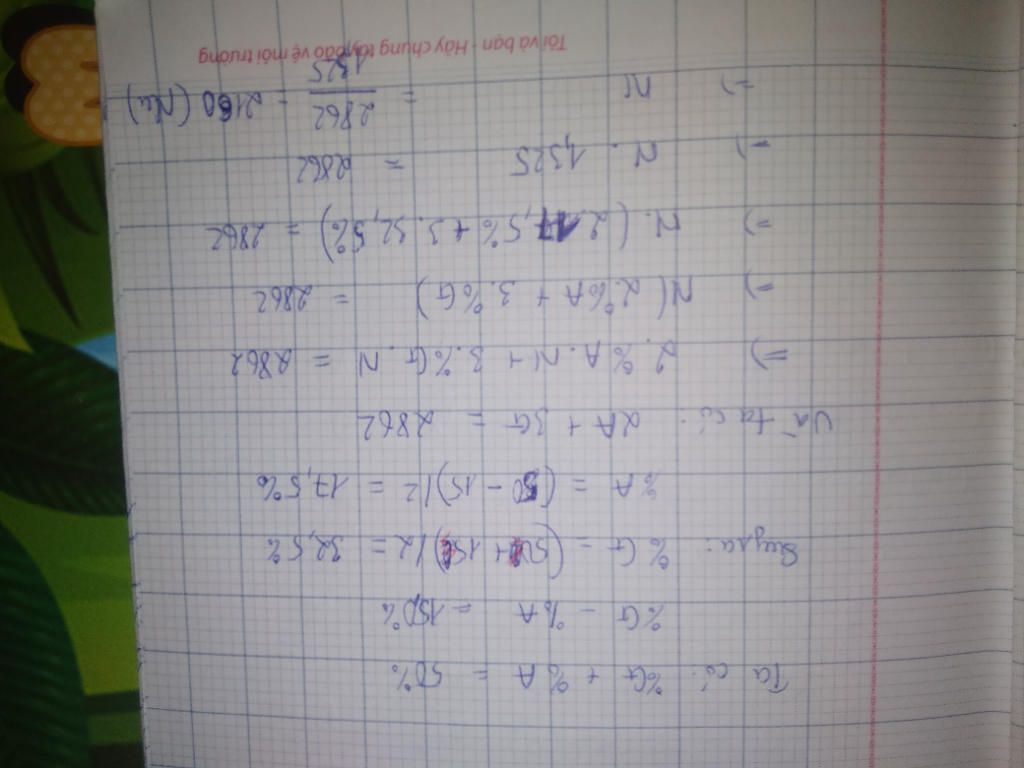 Ta có: %G + %A = 50%
%G - %A = 15%
Suy ra: %G = (50 + 15)/2 = 32,5%
%A = (50 - 15)/2 = 17,5%
Và ta có: 2A + 3G = 2862
=> 2.%A.N + 3.%G.N = 2862
=> N(2%A + 3.%G) = 2862
=> N.(2.17,5% + 3.32,5%) = 2862
=> N. 1,325 = 2862
=> N = 2862/1,325 = 2160 (Nu)
Tôi và bạn - Hãy chung tay bảo vệ môi trường